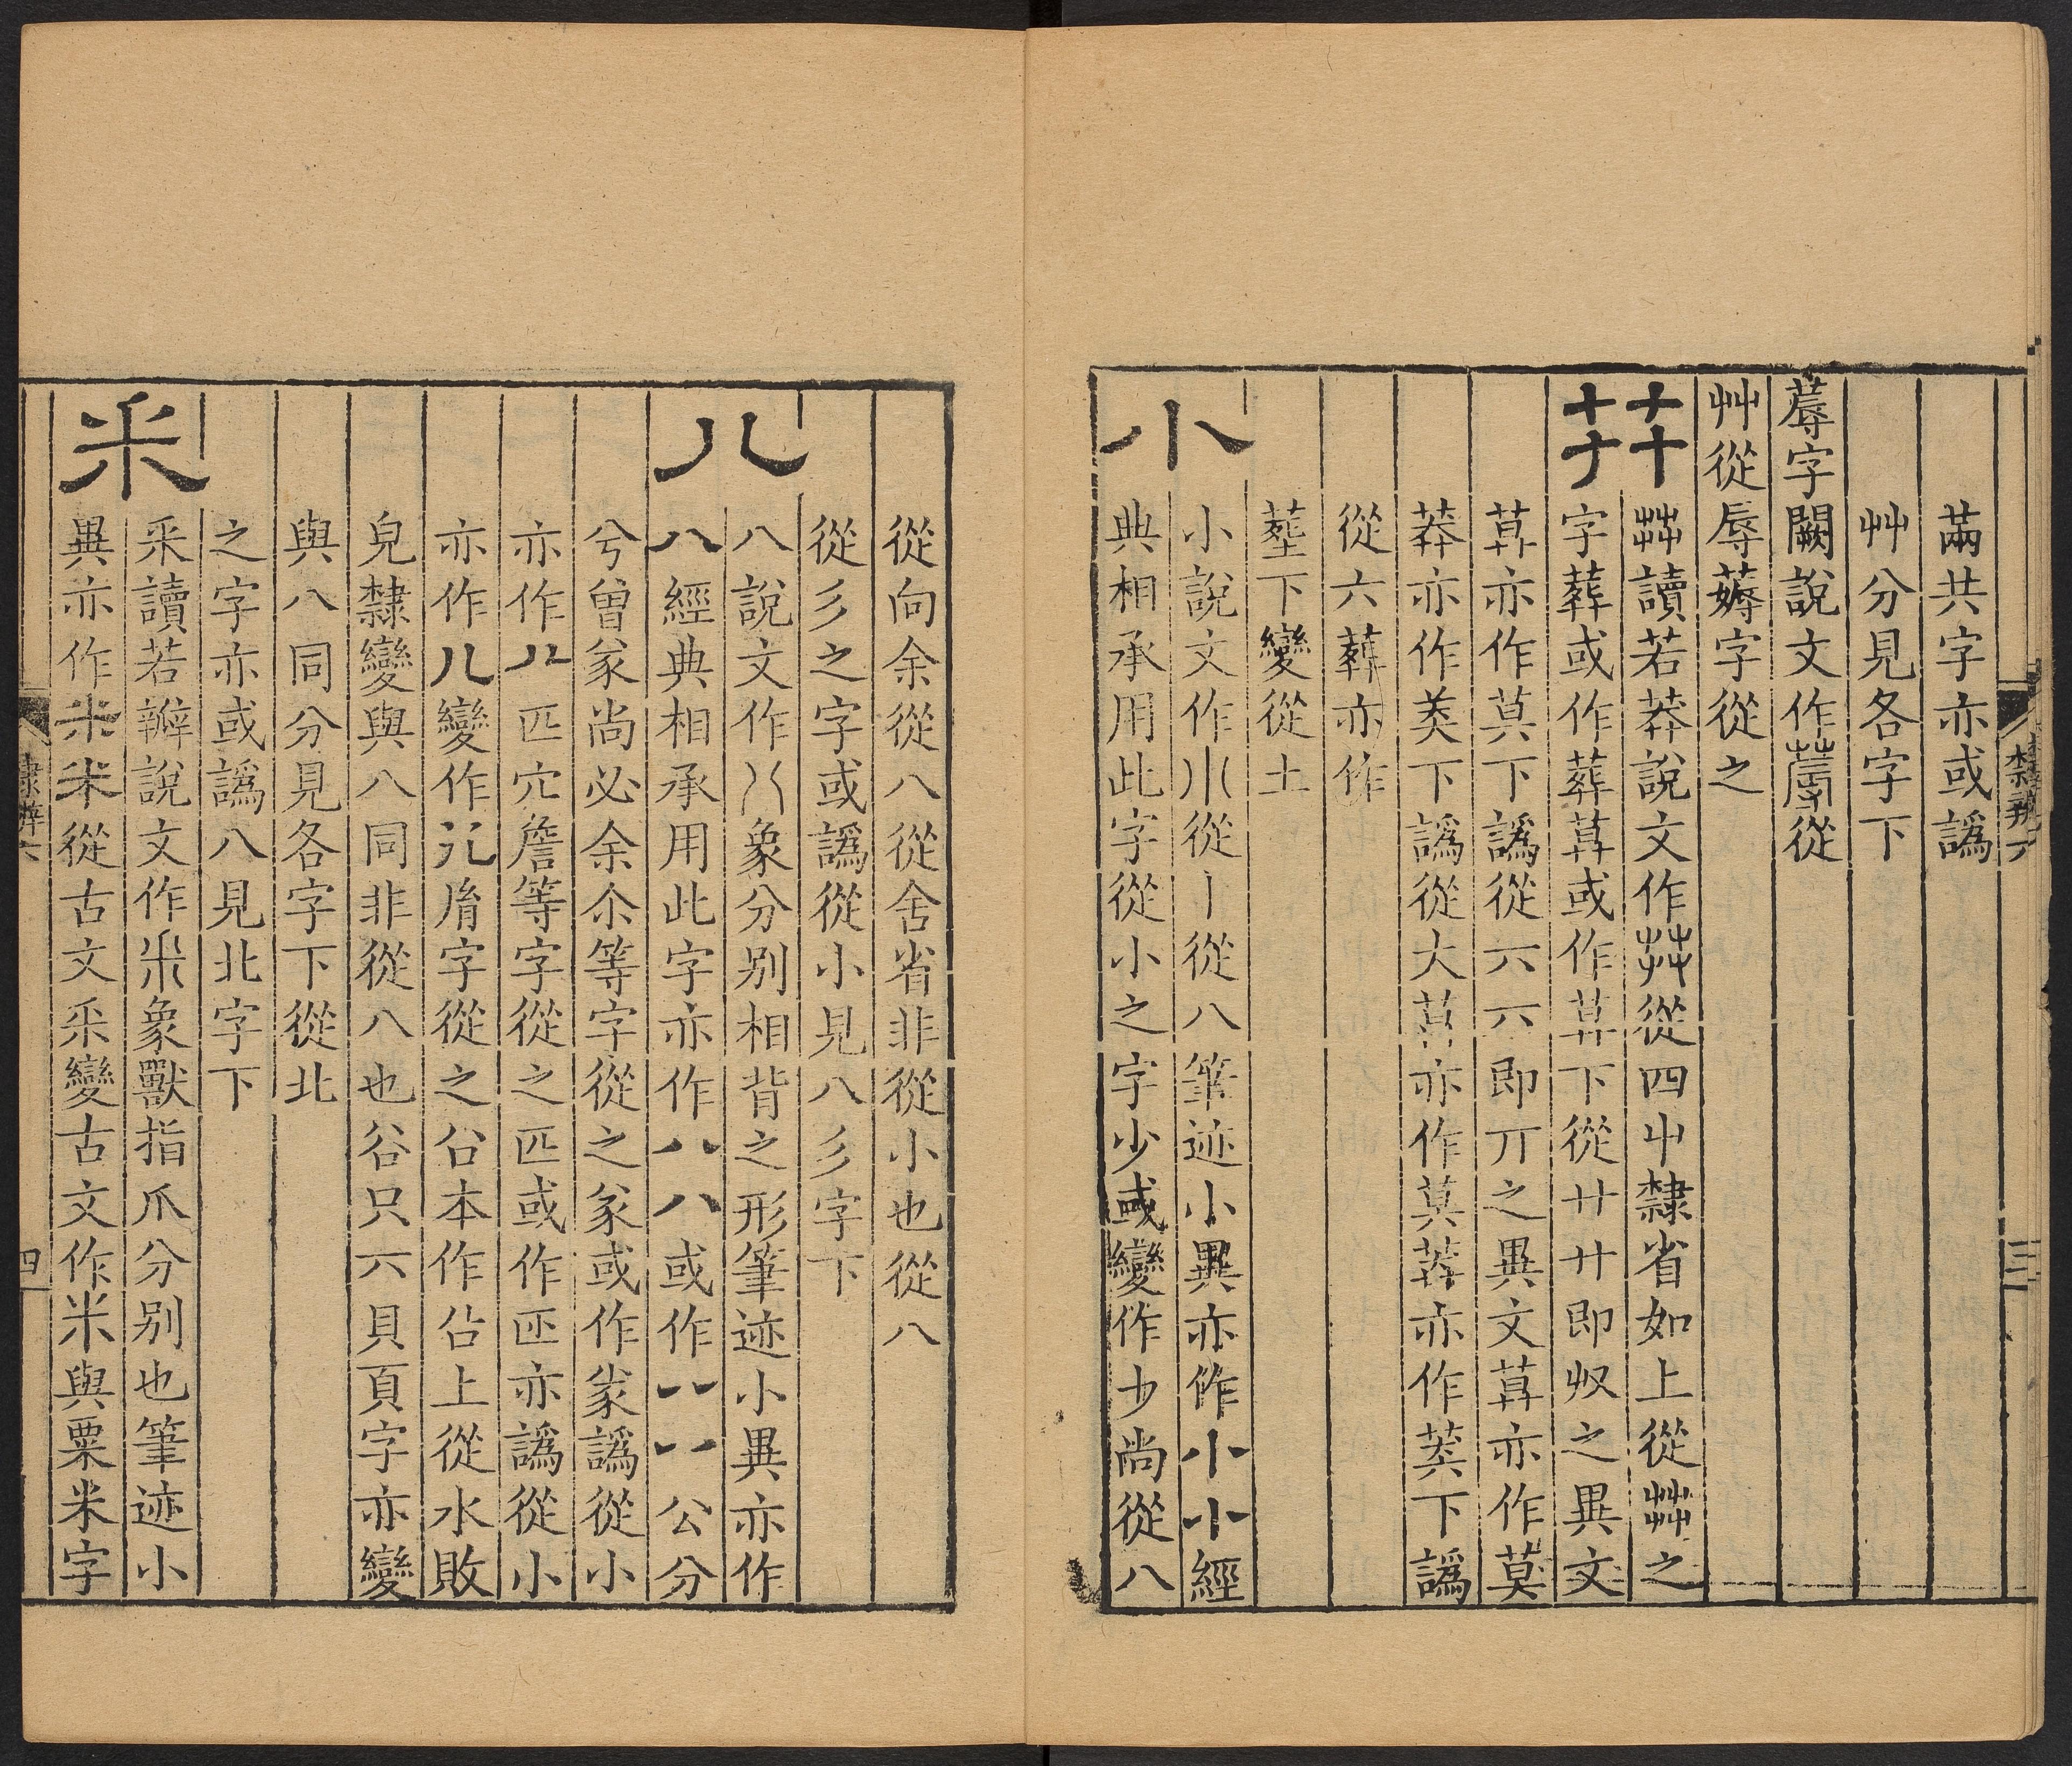 㒼共字亦或譌
艸分見各字下
蓐字闕說文作蓐從
艸從辱薅字從之
茻
茻讀若莽說文作茻從四屮隸省如上從茻之
字葬或作葬莫或作莫下從廾廾即収之異文
莫亦作莫下譌從六六即丌之異文莫亦作莫
莽亦作莽下譌從大莫亦作莫莽亦作莽下譌
從六葬亦作
塟下變從土
小
小說文作小從丨從八筆迹小異亦作小小經
典相承用此字從小之字少或變作少尚從八
從向余從八從舍省非從小也從八
從彡之字或譌從小見八彡字下
八
八說文作八象分別相背之形筆迹小異亦作
八經典相承用此字亦作八八或作八八公分
兮曾㒸尚必余尒等字從之㒸或作㒸譌從小
亦作匹穴詹等字從之匹或作匹亦譌從小
亦作儿變作㐬㕣字從之㕣本作㕣上從水敗
皃隸變與八同非從八也谷只六貝頁字亦變
與八同分見各字下從北
之字亦或譌八見北字下
釆
釆讀若辧說文作釆象獸指爪分別也筆迹小
異亦作米米從古文釆變古文作米與粟米字
隸辨六
三
隸辨六
四